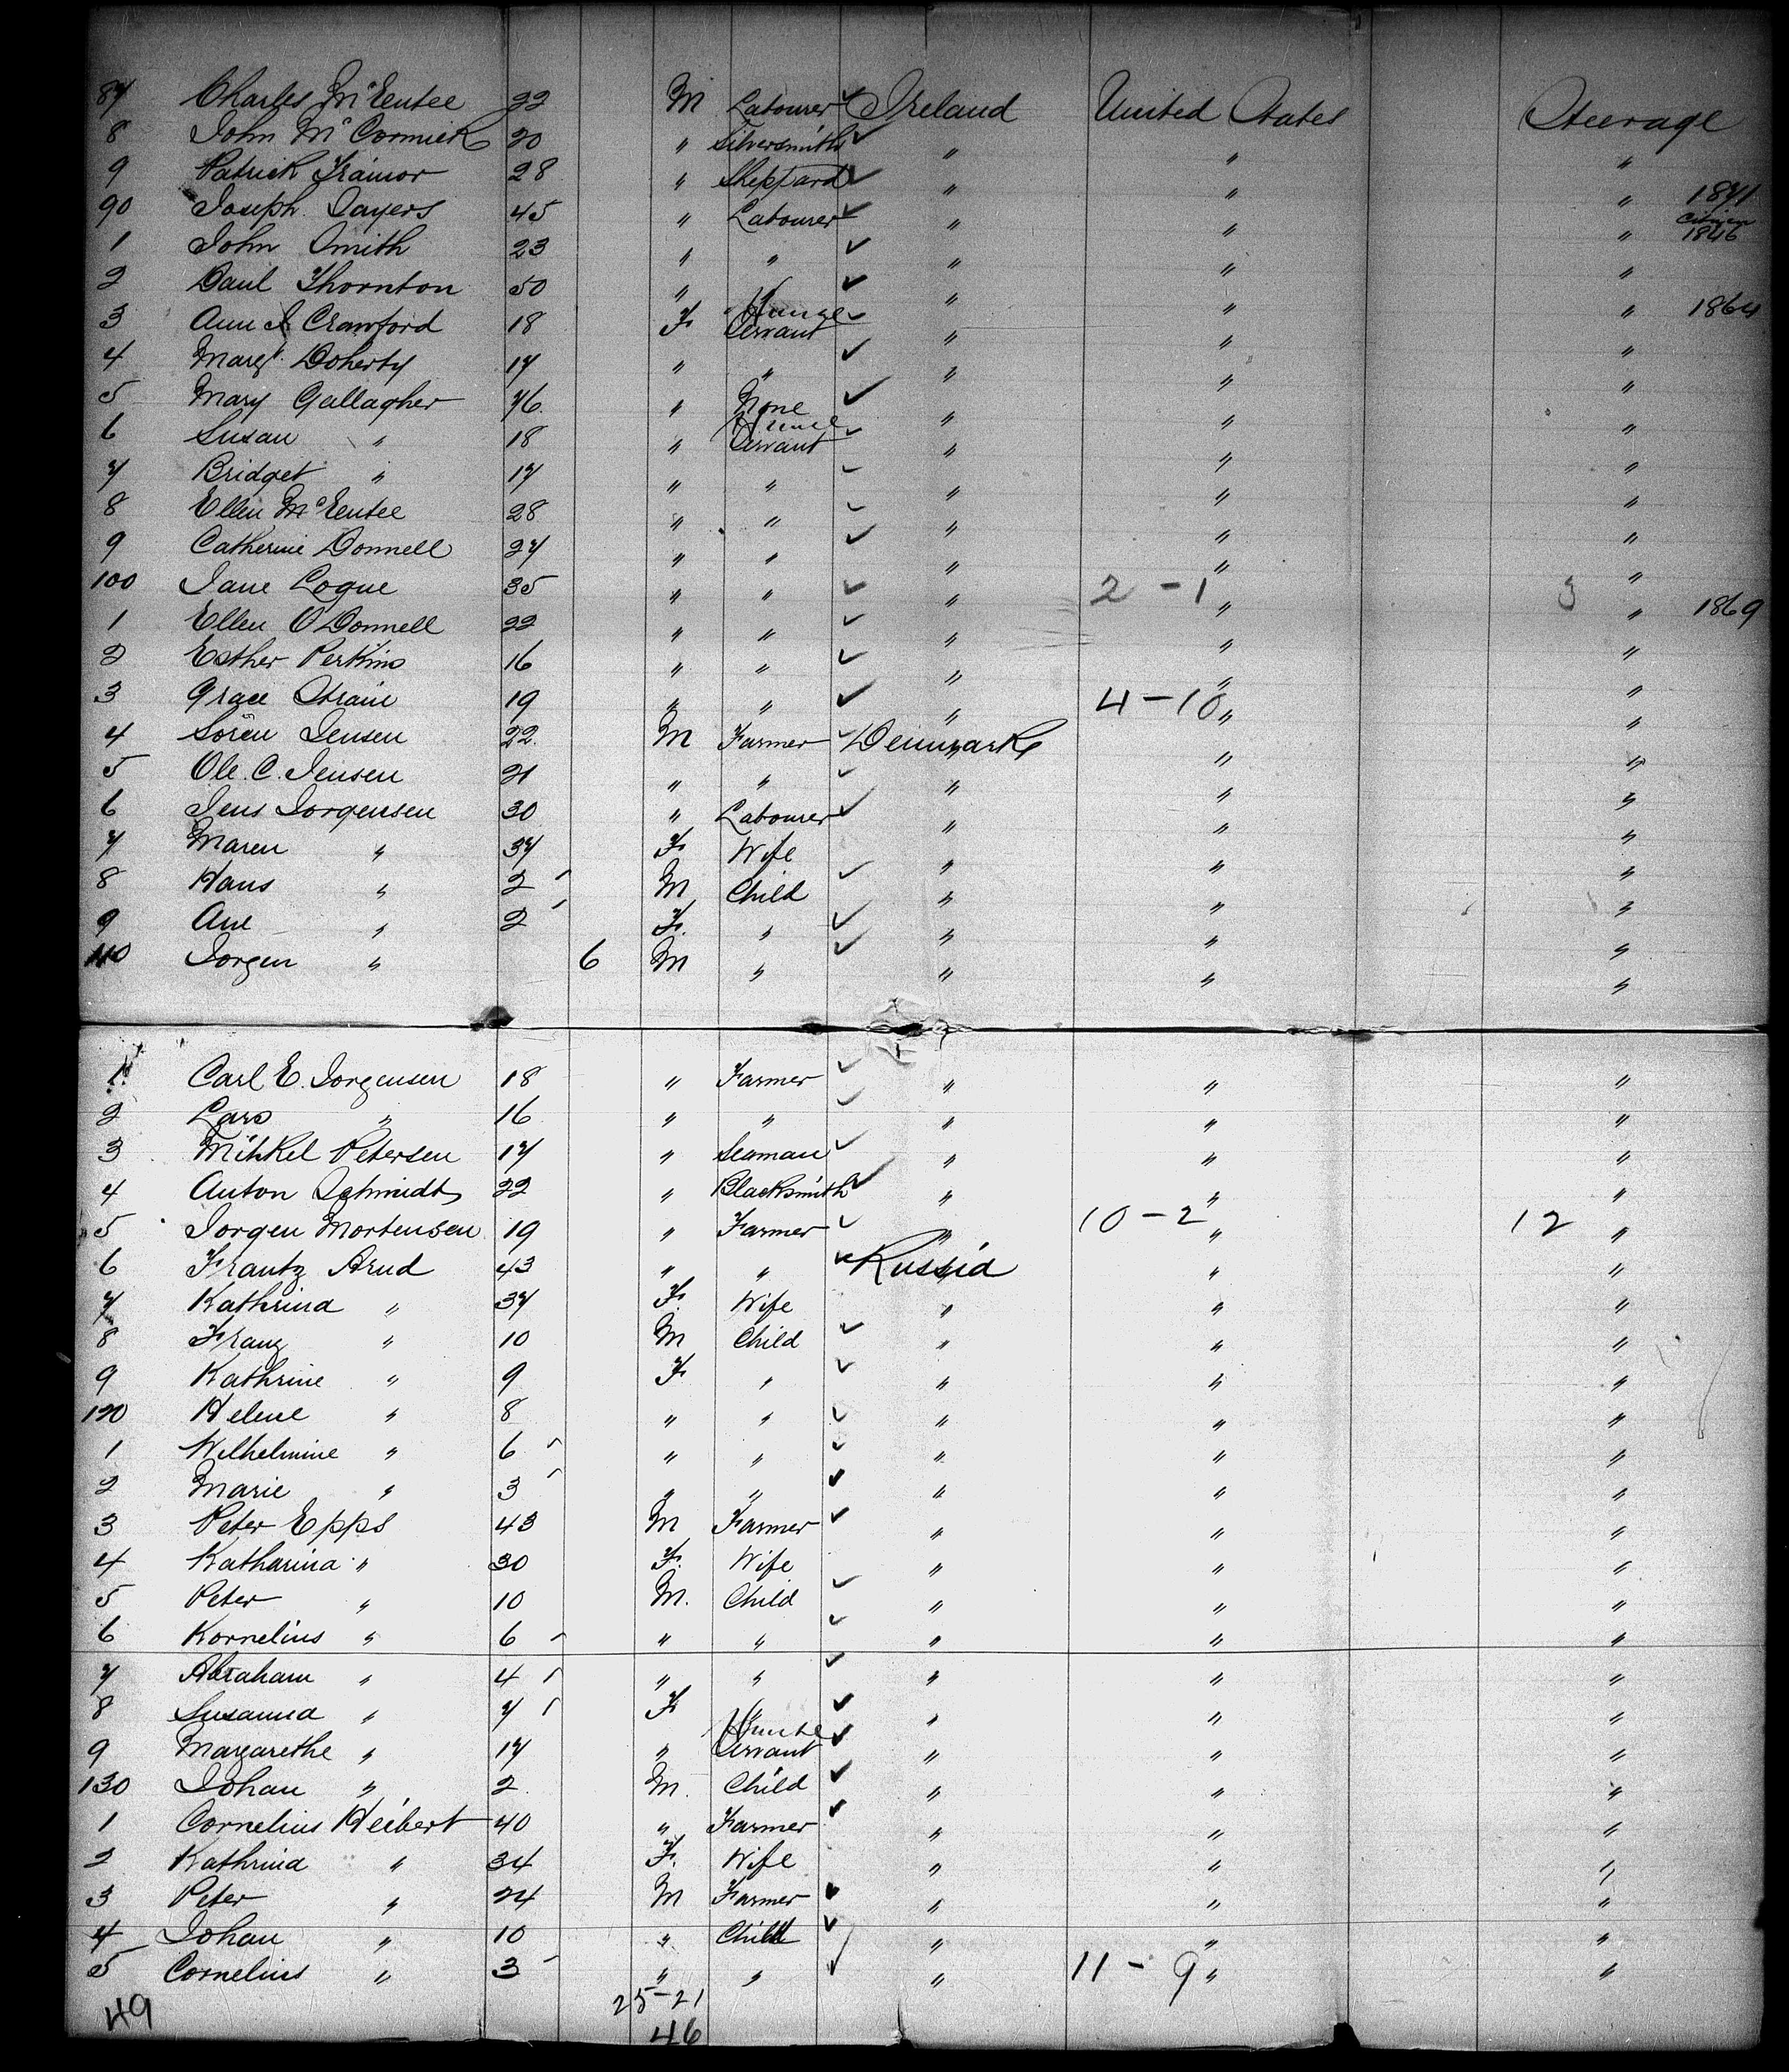 87 Charles McEntee 22 M Labourer ✓ Ireland United States Steerage
8 John McCormick 20 " Silversmith ✓ " " "
9 Patrick Trainor 28 " Sheppard ✓ " " " 1871
90 Joseph Sayers 45 " Labourer ✓ " " " Citizen 1846
1 John Smith 23 " " ✓ " " "
2 Daul Thornton 50 " " ✓ " " " 1864
3 Ann J Crawford 18 F House Servant ✓ " " "
4 Margt. Doherty 17 " " ✓ " " "
5 Mary Gallagher 76 " None ✓ " " "
6 Susan " 18 " House Servant ✓ " " "
7 Bridget " 17 " " ✓ " " "
8 Ellen McEntee 28 " " ✓ " " "
9 Catherine Donnell 27 " " ✓ " " "
100 Jane Logue 35 " " ✓ " 2 - 1 " 3 " 1869
1 Ellen O'Donnell 22 " " ✓ " " "
2 Esther Perkins 16 " " ✓ " " "
3 Grace Strain 19 " " ✓ " 4 - 10 " "
4 Sören Jensen 22 M Farmer ✓ Denmark " "
5 Ole. C. Jensen 21 " " ✓ " " "
6 Jens Jorgensen 30 " Labourer ✓ " " "
7 Maren " 37 F Wife " " "
8 Hans " 2 M Child ✓ " " "
9 Ane " 2 F. " ✓ " " "
110 Jorgen " 6 M " ✓ " " "
1 Carl E. Jorgensen 18 " Farmer ✓ " " "
2 Lars " 16 " " ✓ " " "
3 Mihkel Petersen 17 " Seaman ✓ " " "
4 Anton Schmidt 22 " Blacksmith ✓ " " "
5 Jorgen Mortensen 19 " Farmer ✓ " 10 - 2 " 12 "
6 Frantz Arnd 43 " " ✓ Russia " "
7 Kathrina " 37 F. Wife " " "
8 Franz " 10 M Child ✓ " " "
9 Kathrine " 9 F " ✓ " " "
120 Helene " 8 " " ✓ " " "
1 Wilhelmine " 6 " " ✓ " " "
2 Marie " 3 " " ✓ " " "
3 Peter Epps 43 M Farmer ✓ " " "
4 Katharina " 30 F. Wife " " "
5 Peter " 10 M. Child ✓ " " "
6 Kornelius " 6 " " ✓ " " "
7 Abraham " 4 " " ✓ " " "
8 Susanna " 7 F " ✓ " " "
9 Margarethe " 17 " House Servant ✓ " " "
130 Johan " 2 M. Child ✓ " " "
1 Cornelius Heibert 40 " Farmer ✓ " " "
2 Kathrina " 34 F. Wife " " "
3 Peter " 24 M Farmer ✓ " " "
4 Johan " 10 " Child ✓ " " "
5 Cornelius " 3 " " ✓ " 11 - 9 " "
25-21
49 46